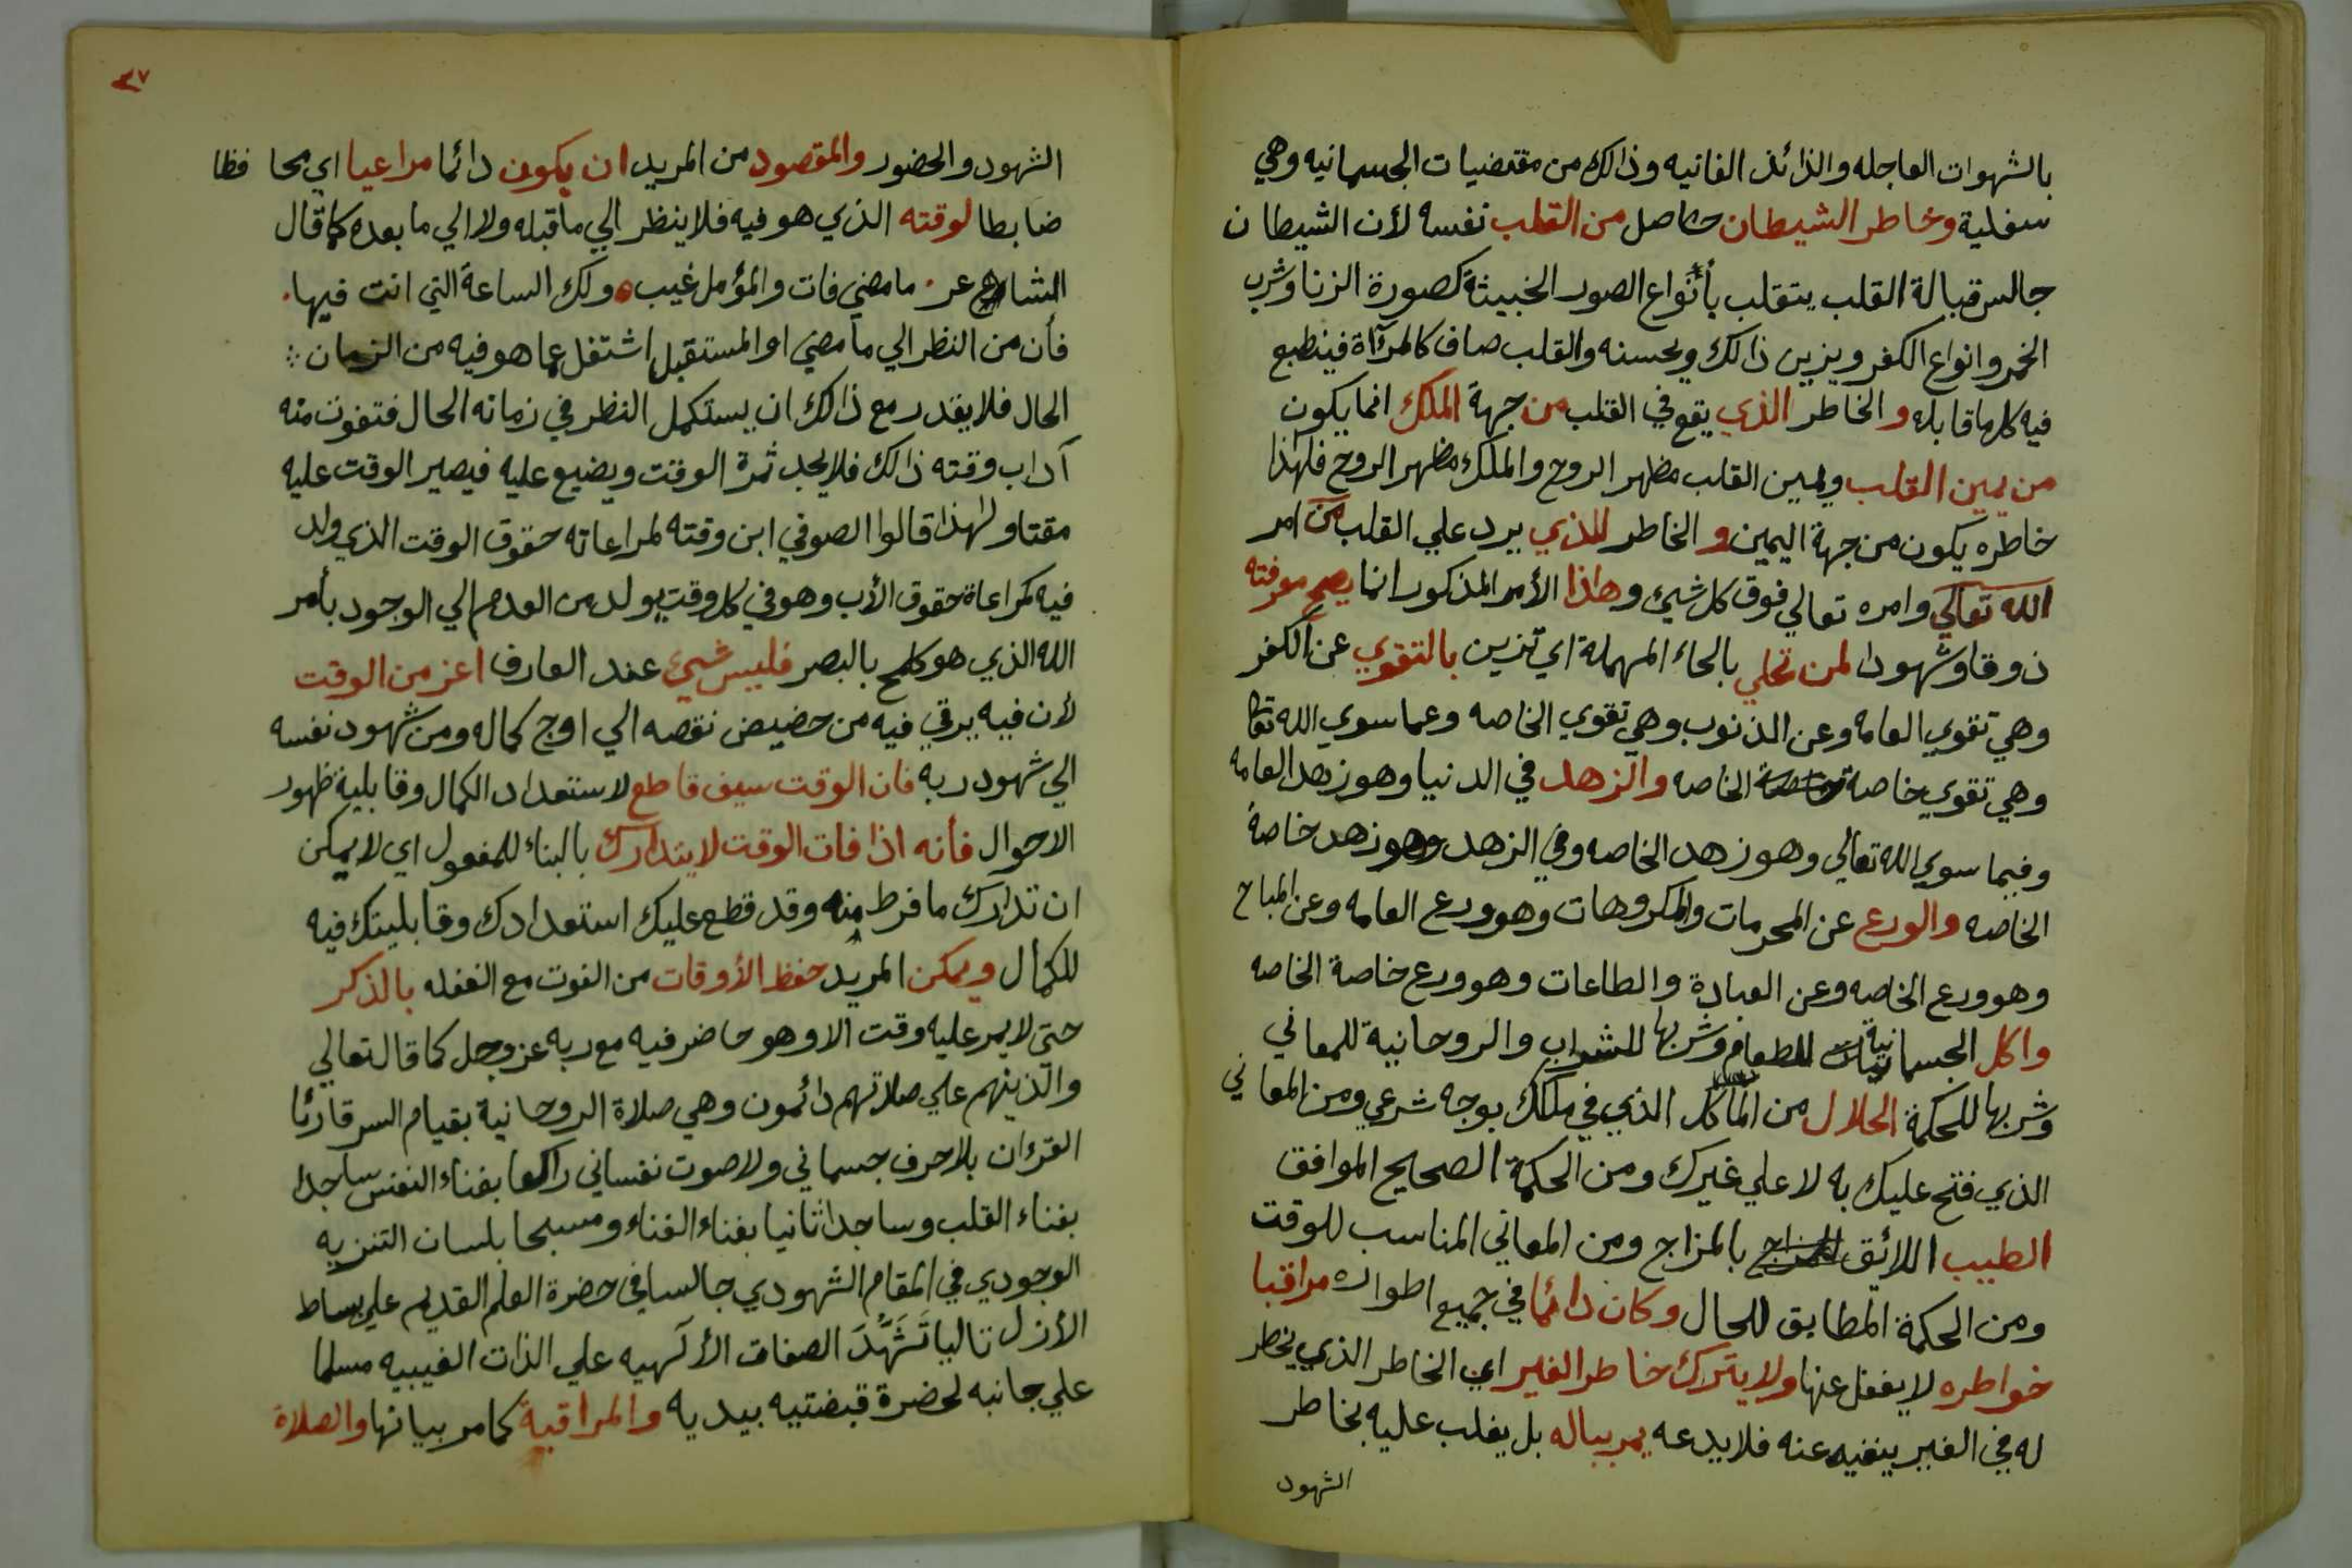 بالشهوات العاجله والذائذ الفانيه وذالك من مقتضيات الجسمانيه وهي
سفلية وخاطر الشيطان حاصل من القلب نفسه لأن الشيطان
جالس قبالة القلب يتقلب بأنواع الصور الخبيثة كصورة الزنا وشرب
الخمر وانواع الكفر ويزين ذالك ويحسنه والقلب صاف كالمرآة فينطبع
فيه كلما قابله والخاطر الذي يقع في القلب من جهة الملك انما يكون
من يمين القلب ويمين القلب مظهر الروح والملك مظهر الروح فلهذا
خاطره يكون من جهة اليمين و الخاطر للذي يرد علي القلب من امر
الله تعالي وامره تعالي فوق كل شيئ وهاذا الأمر المذكور انما يصح معرفته
ذوقا وشهودا لمن تحلي بالحاء المهملة اي تزين بالتقوي عن الكفر
وهي تقوي العامه وعن الذنوب وهي تقوي الخاصه وعما سوي الله تعالي
وهي تقوي خاصة الخاصه والزهد في الدنيا وهو زهد العامه
وفيما سوي الله تعالي وهو زهد الخاصه وفي الزهد وهو زهد خاصة
الخاصه والورع عن المحرمات والمكروهات وهو ورع العامه وعن المباح
وهو ورع الخاصه وعن العبادة والطاعات وهو ورع خاصة الخاصه
واكل الجسمانية للطعام وشربها للشراب والروحانية للمعاني
وشربها للحكمة الحلال من المأكل الذي في ملكك بوجه شرعي ومن المعاني
الذي فتح عليك به لا علي غيرك ومن الحكمة الصحيح الموافق
الطيب اللائق بالمزاج ومن المعاني المناسب للوقت
ومن الحكمة المطابق للحال وكان دائما في جميع اطواره مراقبا
خواطره لا يغفل عنها ولا يترك خاطر الغير اي الخاطر الذي يخطر
له في الغير ينفيه عنه فلا يدعه يمر بباله بل يغلب عليه بخاطر
الشهود
٣٧
الشهود والحضور والمقصود من المريد ان يكون دائما مراعيا اي محا فظا
ضابطا لوقته الذي هو فيه فلا ينظر الي ما قبله ولا الي ما بعده كما قال
الشاعر ما مضي فات والمؤمل غيب ولك الساعة التي انت فيها
فأن من النظر الي ما مضي او المستقبل اشتغل عما هو فيه من الزمان
الحال فلا يقدر مع ذالك ان يستكمل النظر في زمانه الحال فتفوت منه
آداب وقته ذالك فلا يجد ثمرة الوقت ويضيع عليه فيصير الوقت عليه
مقتا ولهذا قالوا الصوفي ابن وقته لمراعاته حقوق الوقت الذي ولد
فيه كمراعاة حقوق الأب وهو في كل وقت يولد من العدم الي الوجود بأمر
الله الذي هو كلمح بالبصر فليس شيئ عند العارف اعز من الوقت
لأن فيه يرقي فيه من حضيض نقصه الي اوج كماله ومن شهود نفسه
الي شهود ربه فان الوقت سيف قاطع لاستعداد الكمال وقابلية ظهور
الاحوال فأنه اذا فات الوقت لا يتدارك بالبناء للمفعول اي لا يمكن
ان تدارك ما فرط منه وقد قطع عليك استعدادك وقابليتك فيه
للكمال ويمكن المريد حفظ الأوقات من الفوت مع الغفله بالذكر
حتي لا يمر عليه وقت الا وهو حاضر فيه مع ربه عز وجل كما قال تعالي
والذينهم علي صلاتهم دائمون وهي صلاة الروحانية بقيام السر قارئا
القرءان بلا حرف جسماني ولا صوت نفساني راكعا بفناء النفس ساجدا
بفناء القلب وساجدا ثانيا بفناء الفناء ومسبحا بلسان التنزيه
الوجودي في المقام الشهودي جالسا في حضرة العلم القديم علي بساط
الأزل تاليا تَشَهُّدَ الصفات الألهيه علي الذات الغيبيه مسلما
علي جانبه لحضرة قبضتيه بيديه والمراقبة كما مر بيانها والصلاة